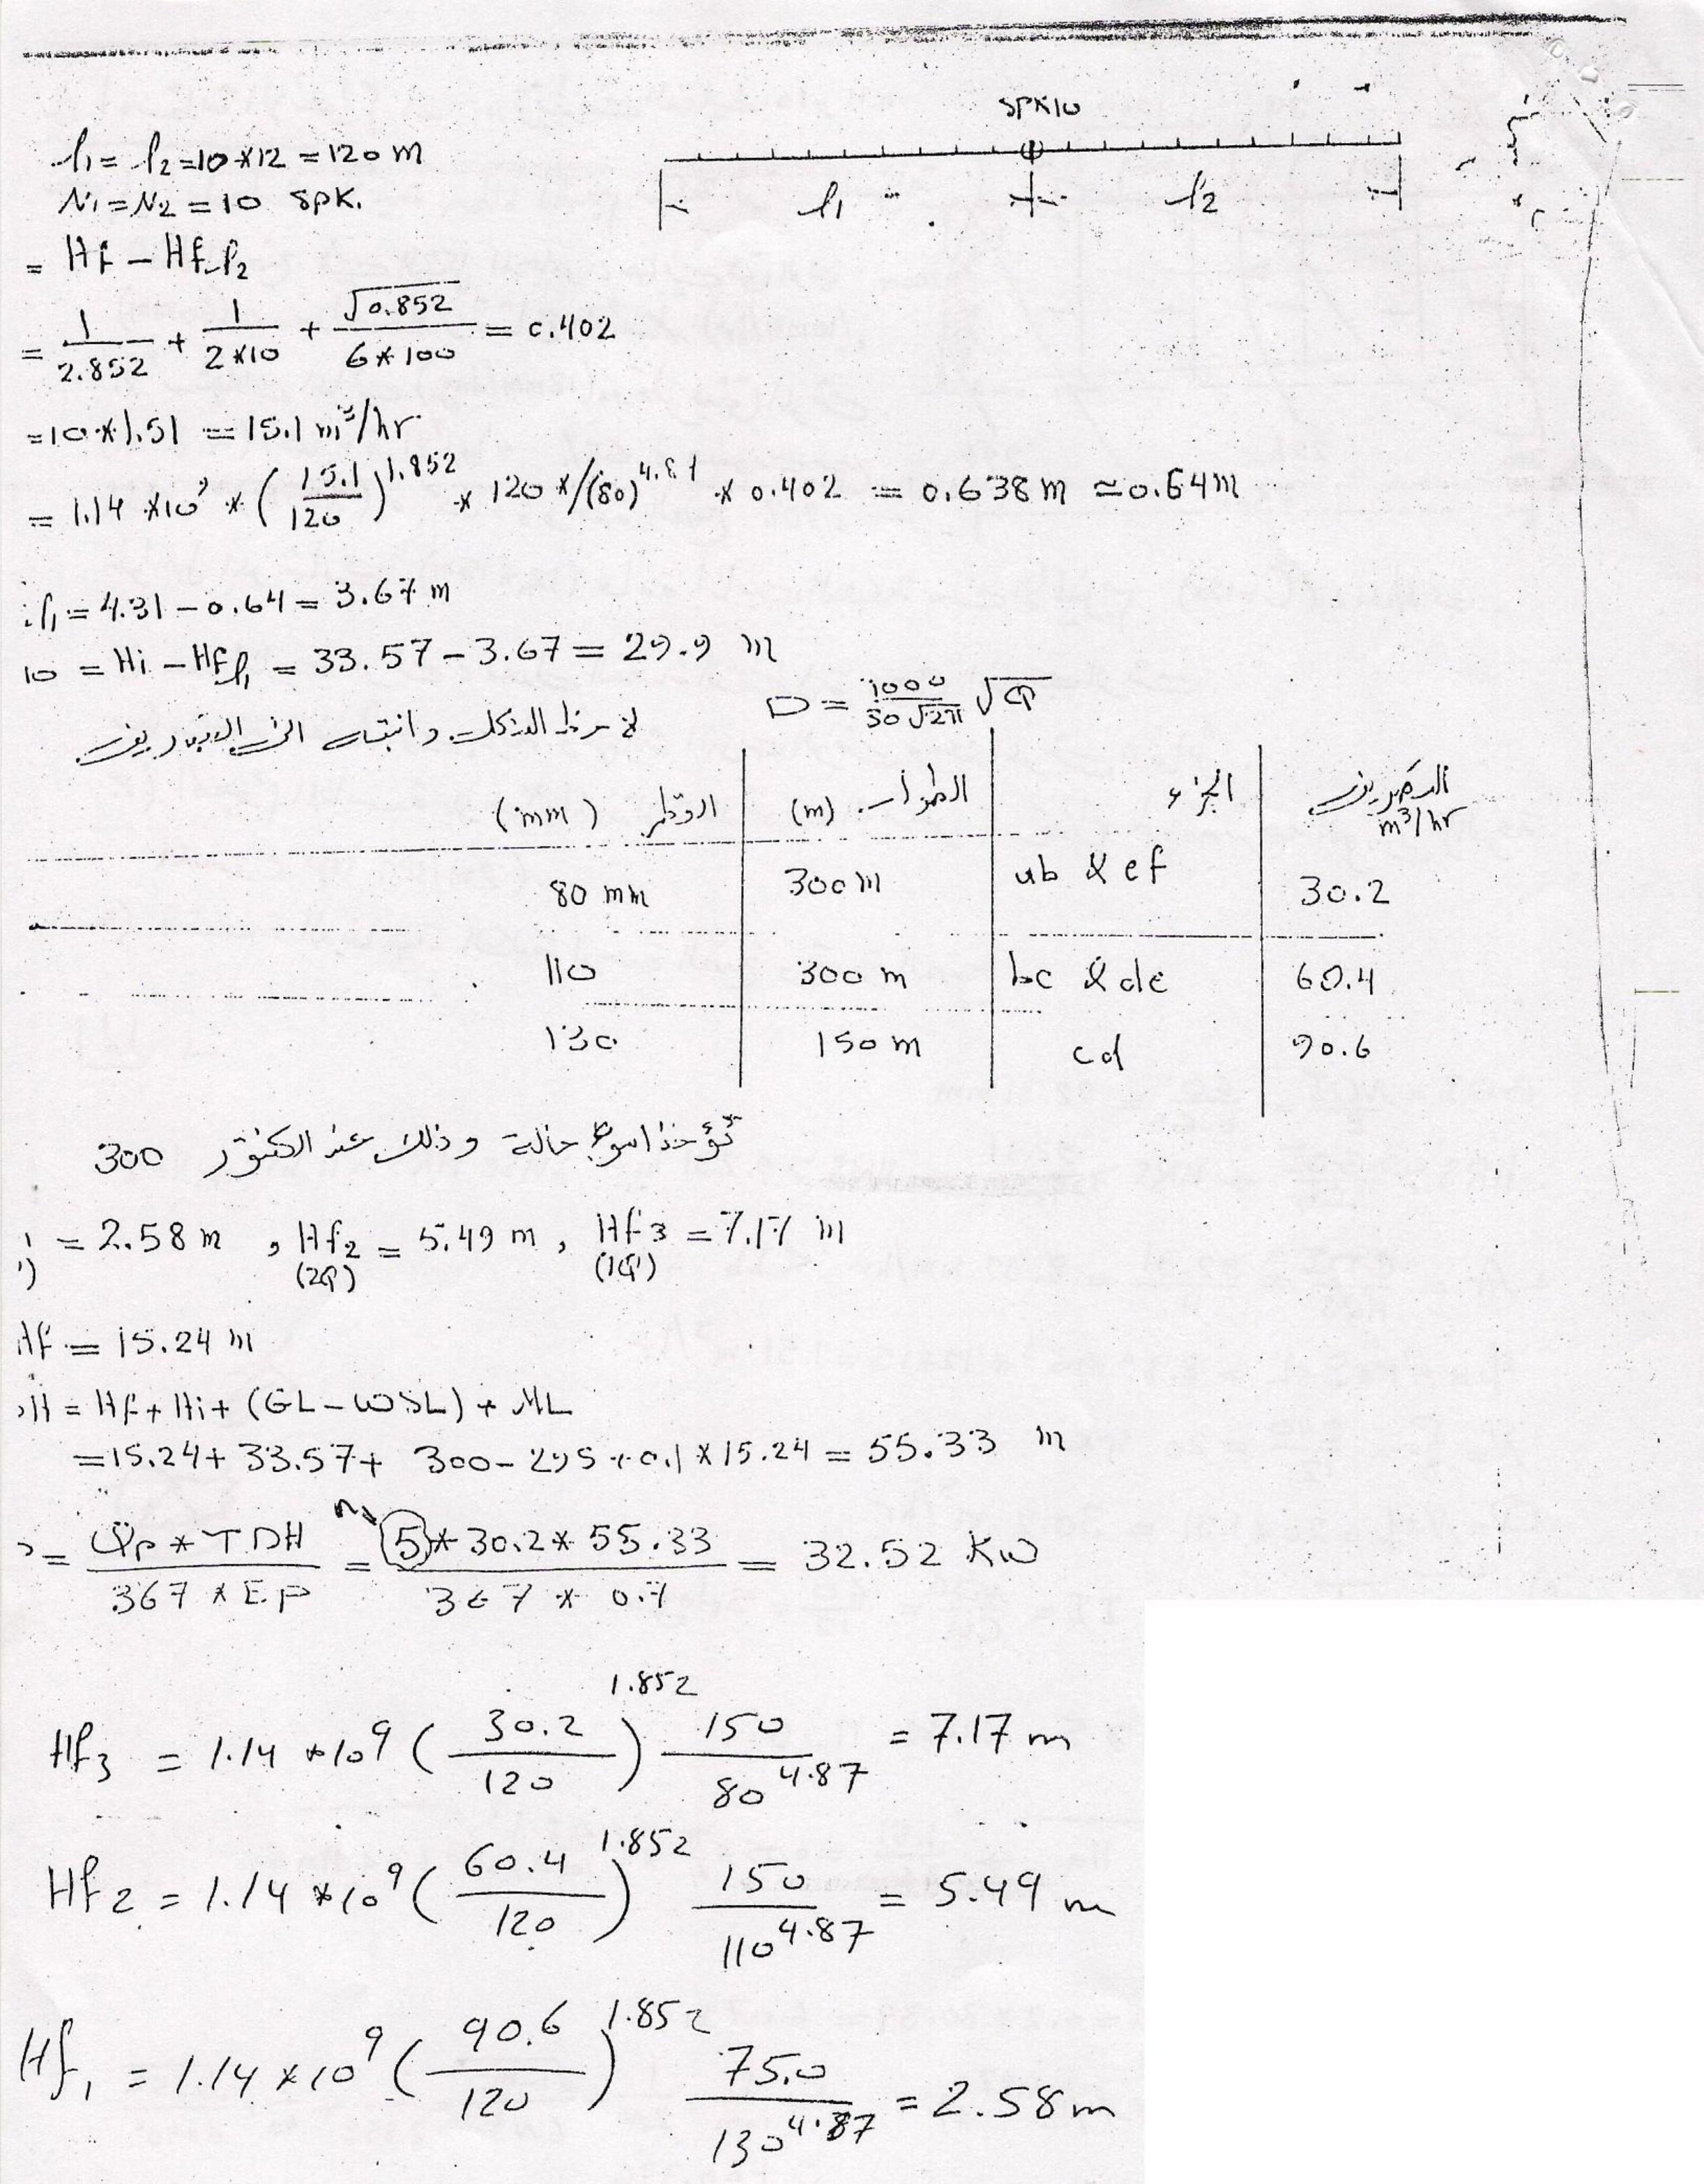 SPK10
l1 = l2 = 10 * 12 = 120 m
N1 = N2 = 10 spk.
l1 l2
= Hf - Hf-l2
= 1/2.852 + 1/(2*10) + √0.852/(6*100) = 0.402
= 10 * 1.51 = 15.1 m³/hr
= 1.14 * 10⁹ * (15.1/120)^1.852 * 120 * /(80)^4.87 * 0.402 = 0.638 m ≃ 0.64 m
l1 = 4.31 - 0.64 = 3.67 m
10 = Hi - Hfl1 = 33.57 - 3.67 = 29.9 m
D = 1000/(30√2π) √Q
وانتبه الى
التصريف m³/hr الجزء الطول (m) القطر (mm)
30.2 ab & ef 300 m 80 mm
60.4 bc & de 300 m 110
90.6 cd 150 m 130
تؤخذ اسوء حالة وذلك عند الكنتور 300
= 2.58 m , Hf2 = 5.49 m , Hf3 = 7.17 m
(2Q) (1Q)
Hf = 15.24 m
DH = Hf + Hi + (GL - WSL) + ML
= 15.24 + 33.57 + 300 - 295 + 0.1 * 15.24 = 55.33 m
= Qp * TDH / 367 * Ep = 5 * 30.2 * 55.33 / 367 * 0.7 = 32.52 Kw
Hf3 = 1.14 * 10⁹ (30.2/120)^1.852 150/80^4.87 = 7.17 m
Hf2 = 1.14 * 10⁹ (60.4/120)^1.852 150/110^4.87 = 5.49 m
Hf1 = 1.14 * 10⁹ (90.6/120)^1.852 75.0/130^4.87 = 2.58 m